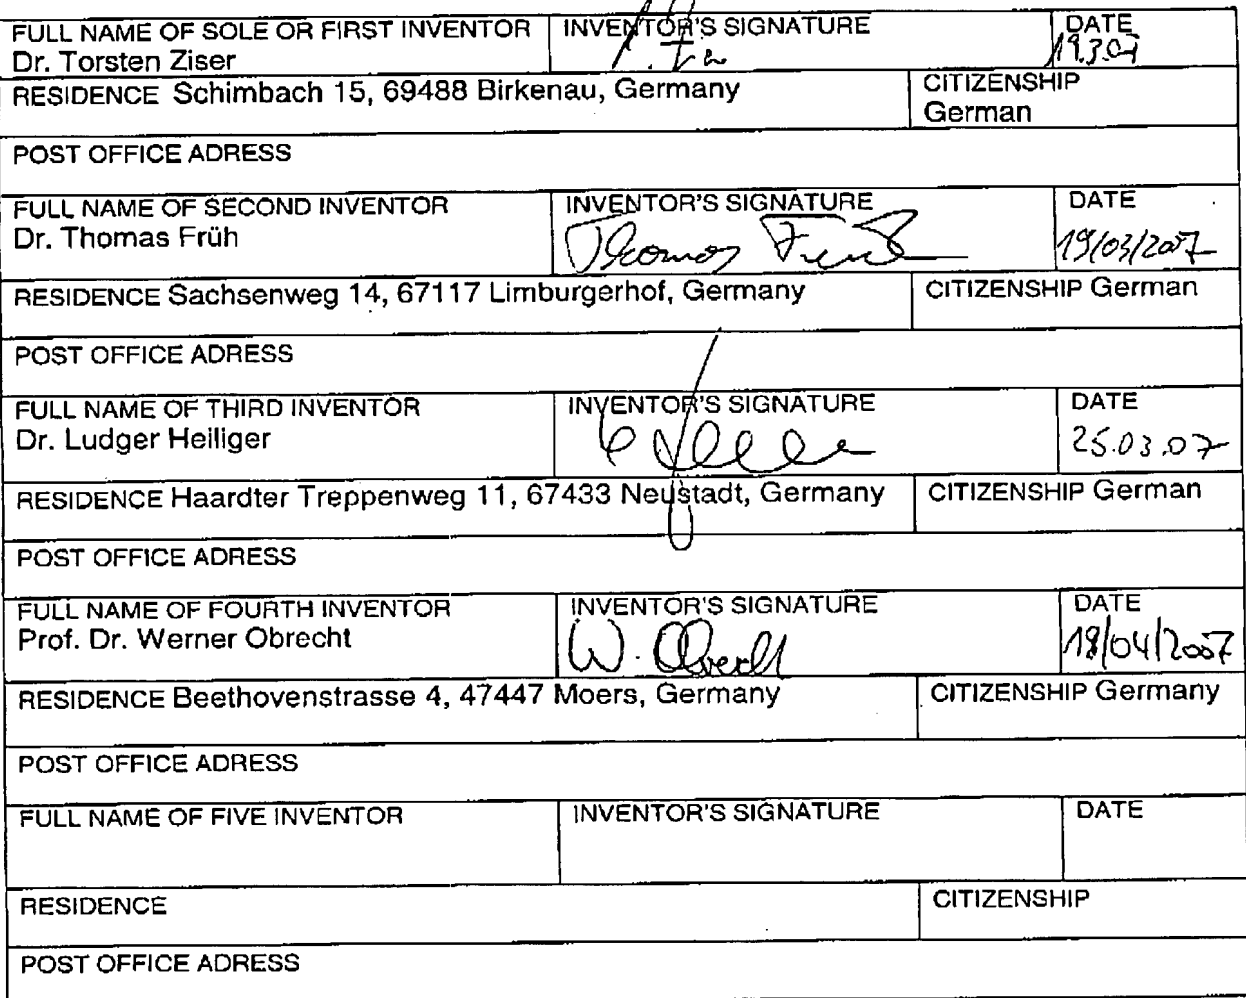 FULL NAME OF SOLE OR FIRST INVENTOR INVENTOR'S SIGNATURE DATE
Dr. Torsten Ziser 19.3.07
RESIDENCE Schimbach 15, 69488 Birkenau, Germany CITIZENSHIP
German
POST OFFICE ADRESS
FULL NAME OF SECOND INVENTOR INVENTOR'S SIGNATURE DATE
Dr. Thomas Früh Thomas Früh 19/03/2007
RESIDENCE Sachsenweg 14, 67117 Limburgerhof, Germany CITIZENSHIP German
POST OFFICE ADRESS
FULL NAME OF THIRD INVENTOR INVENTOR'S SIGNATURE DATE
Dr. Ludger Heiliger 25.03.07
RESIDENCE Haardter Treppenweg 11, 67433 Neustadt, Germany CITIZENSHIP German
POST OFFICE ADRESS
FULL NAME OF FOURTH INVENTOR INVENTOR'S SIGNATURE DATE
Prof. Dr. Werner Obrecht W. Obrecht 18/04/2007
RESIDENCE Beethovenstrasse 4, 47447 Moers, Germany CITIZENSHIP Germany
POST OFFICE ADRESS
FULL NAME OF FIVE INVENTOR INVENTOR'S SIGNATURE DATE
RESIDENCE CITIZENSHIP
POST OFFICE ADRESS